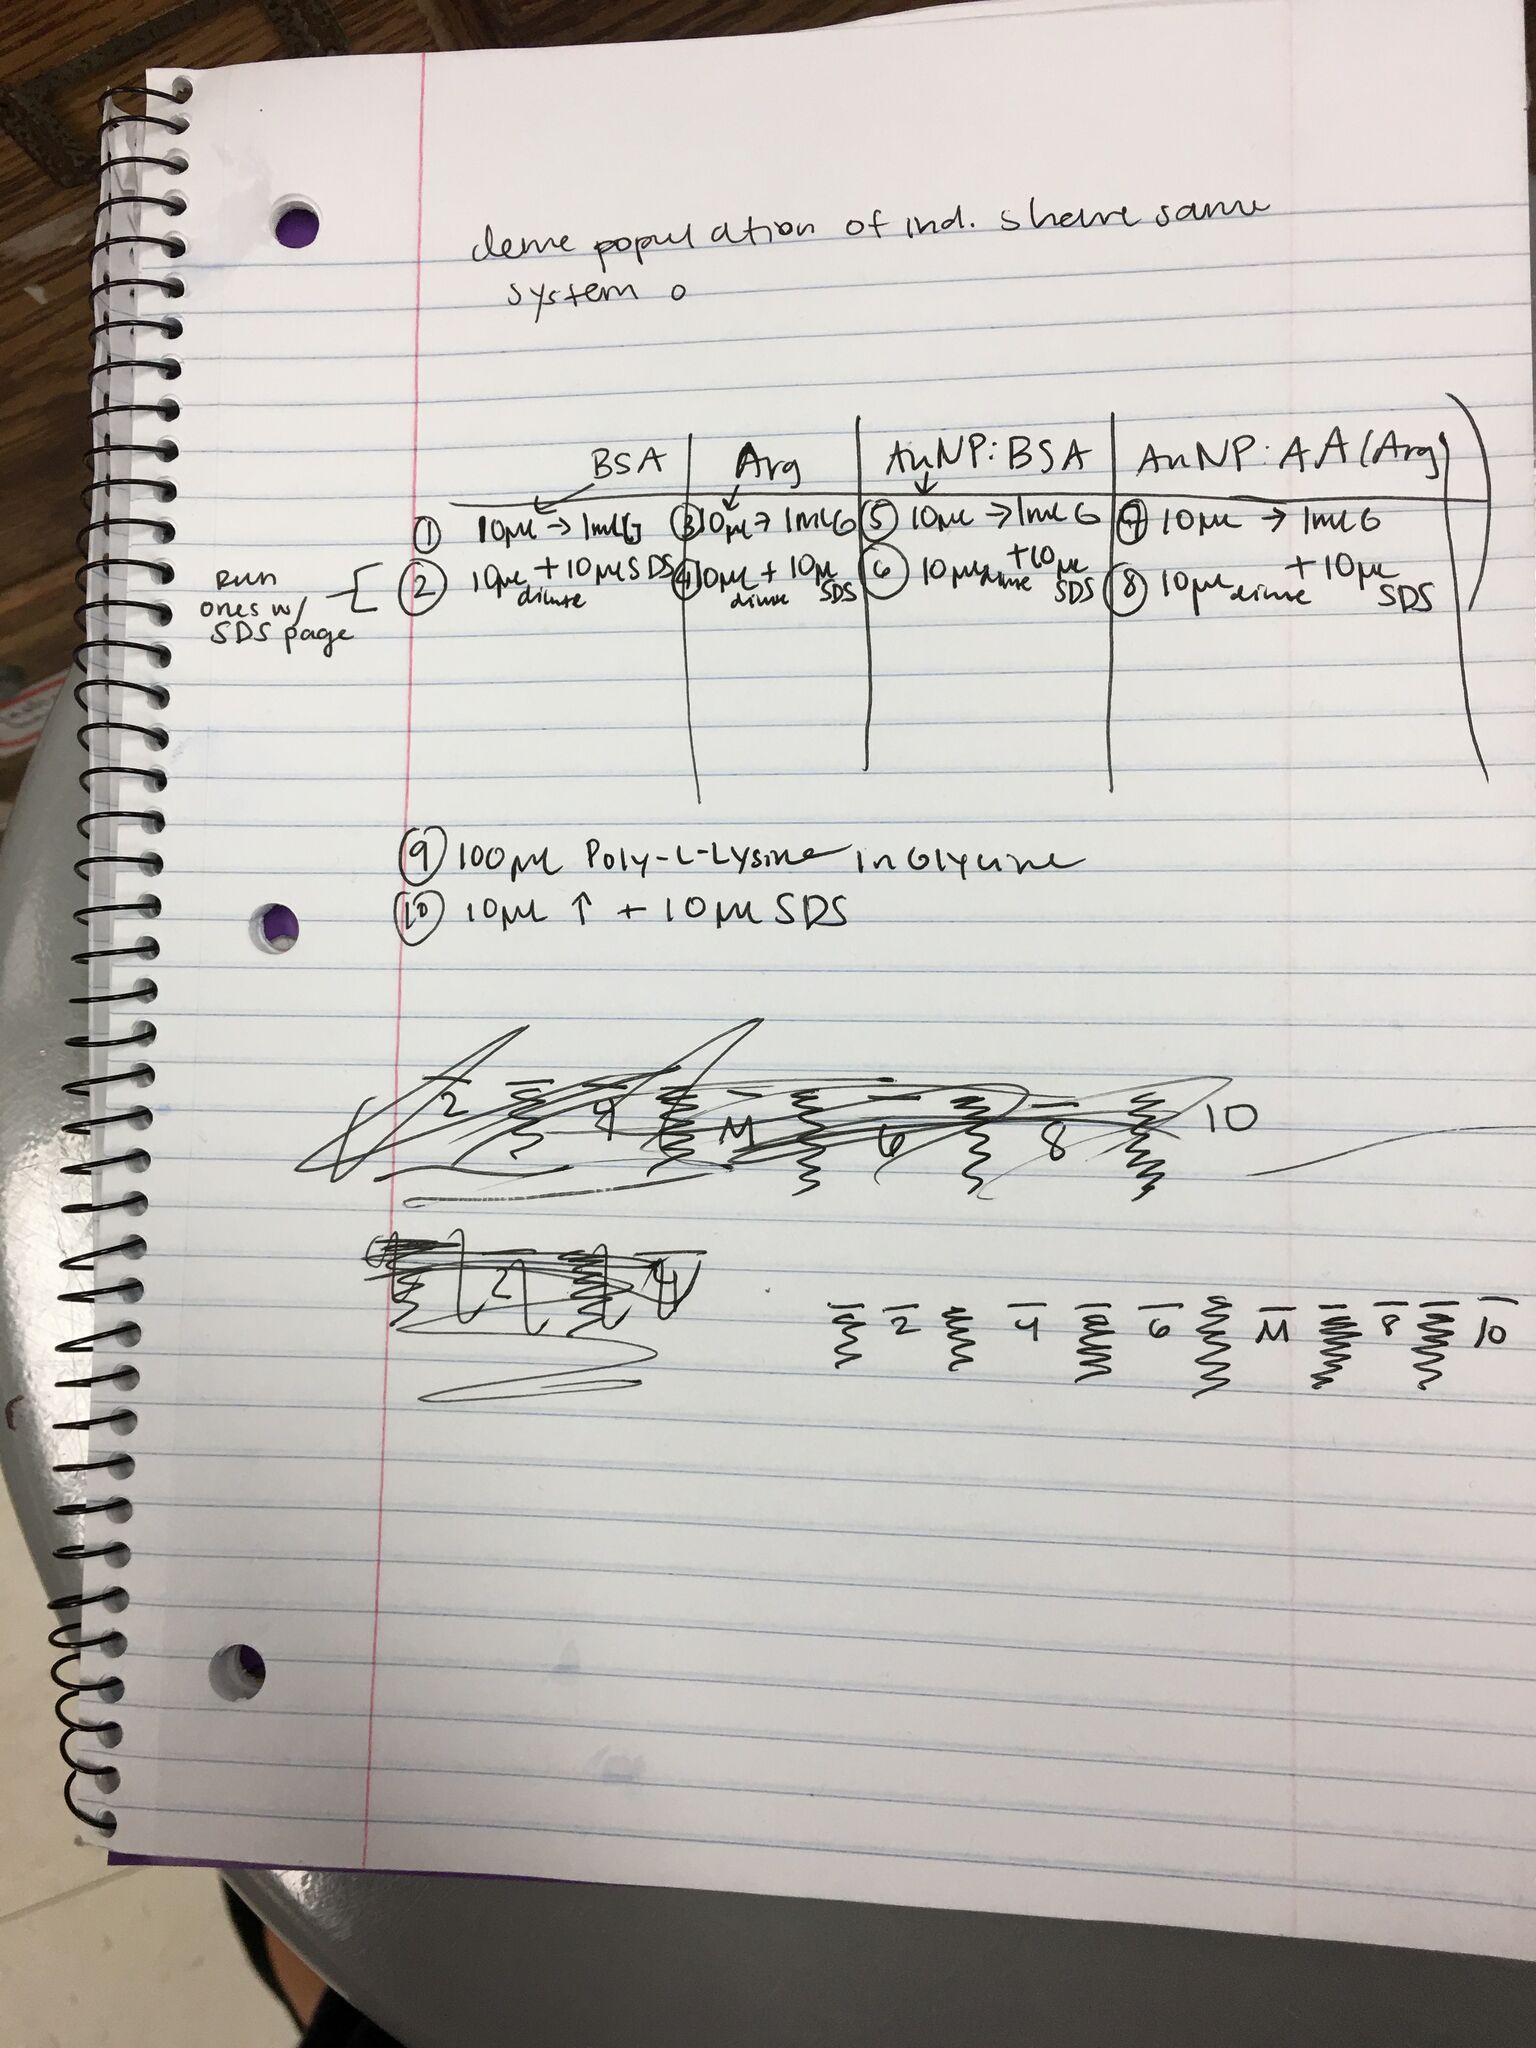 deme population of ind. share same
system o
BSA Arg AuNP:BSA AuNP:AA(Arg)
① 10µL → 1mL G ③ 10µL → 1mL G ⑤ 10µL → 1mL G ⑦ 10µL → 1mL G
② 10µL dilute + 10µL SDS ④ 10µL dilute + 10µL SDS ⑥ 10µL dilute + 10µL SDS ⑧ 10µL dilute + 10µL SDS
Run
ones w/
SDS page
⑨ 100µL Poly-L-Lysine in Glycine
⑩ 10µL ↑ + 10µL SDS
2 4 M 6 8 10
2 4
2 4 6 M 8 10